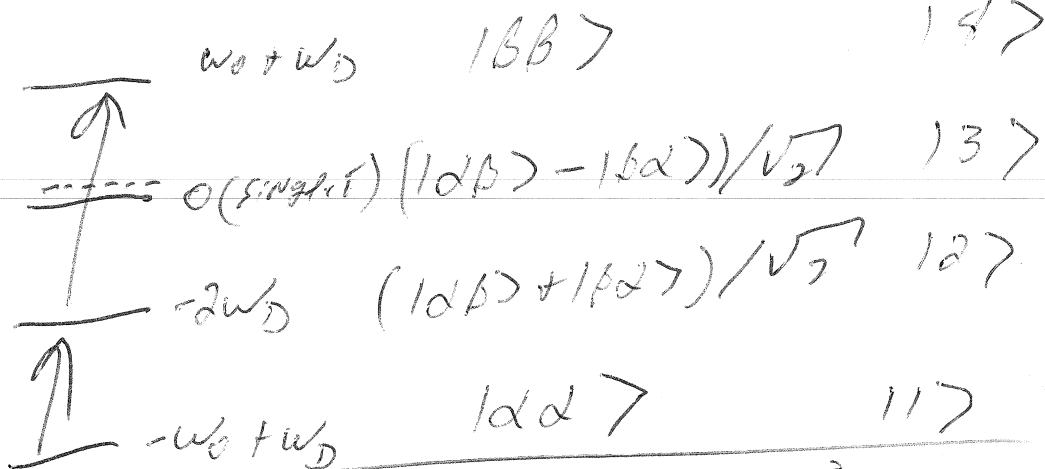 ω0 + ωD |ββ> |4>
0(singlet) (|αβ> - |βα>)/√2 |3>
-2ωD (|αβ> + |βα>)/√2 |2>
-ω0 + ωD |αα> |1>